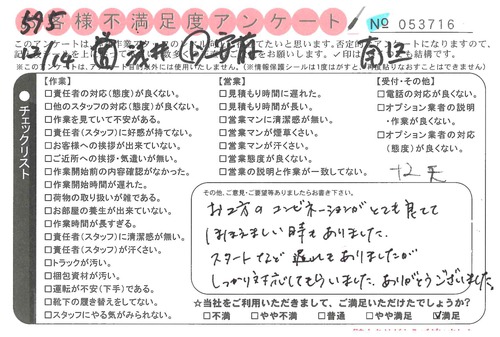 お客様不満足度アンケート
№ 053716
595
12/14
このアンケートは
否定的アンケートになりますので、
記
をお願いします。✓印は
も結構です。
※このアンケートは、アフターケア目的以外には使用いたしません。(※情報保護シールは1度はがすと、再度貼りなおすことはできません)
チェックリスト
【作業】
□責任者の対応(態度)が良くない。
□他のスタッフの対応(態度)が良くない。
□作業を見ていて不安がある。
□責任者(スタッフ)に好感が持てない。
□お客様への挨拶が出来ていない。
□ご近所への挨拶・気遣いが無い。
□作業開始前の内容確認がなかった。
□作業開始時間が遅れた。
□荷物の取り扱いが雑である。
□お部屋の養生が出来ていない。
□作業時間が長すぎる。
□責任者(スタッフ)に清潔感が無い。
□責任者(スタッフ)が汗くさい。
□トラックが汚い。
□梱包資材が汚い。
□運転が不安(下手)である。
□靴下の履き替えをしてない。
□スタッフにやる気がみられない。
【営業】
□見積もり時間に遅れた。
□見積もり時間が長い。
□営業マンに清潔感が無い。
□営業マンが煙草くさい。
□営業マンが汗くさい。
□営業態度が良くない。
□営業の説明と作業が一致してない。
【受付・その他】
□電話の対応が良くない。
□オプション業者の説明
・作業が良くない。
□オプション業者の対応
(態度)が良くない。
その他、ご意見・ご要望等ありましたらお書き下さい。
お2方のコンビネーションがとても見てて
ほほえましい時もありました。
スタートなど遅れもありましたが
しっかり対応してもらいました。ありがとうございました。
☆当社をご利用いただきまして、ご満足いただけたでしょうか?
□不満 □やや不満 □普通 □やや満足 ☑満足